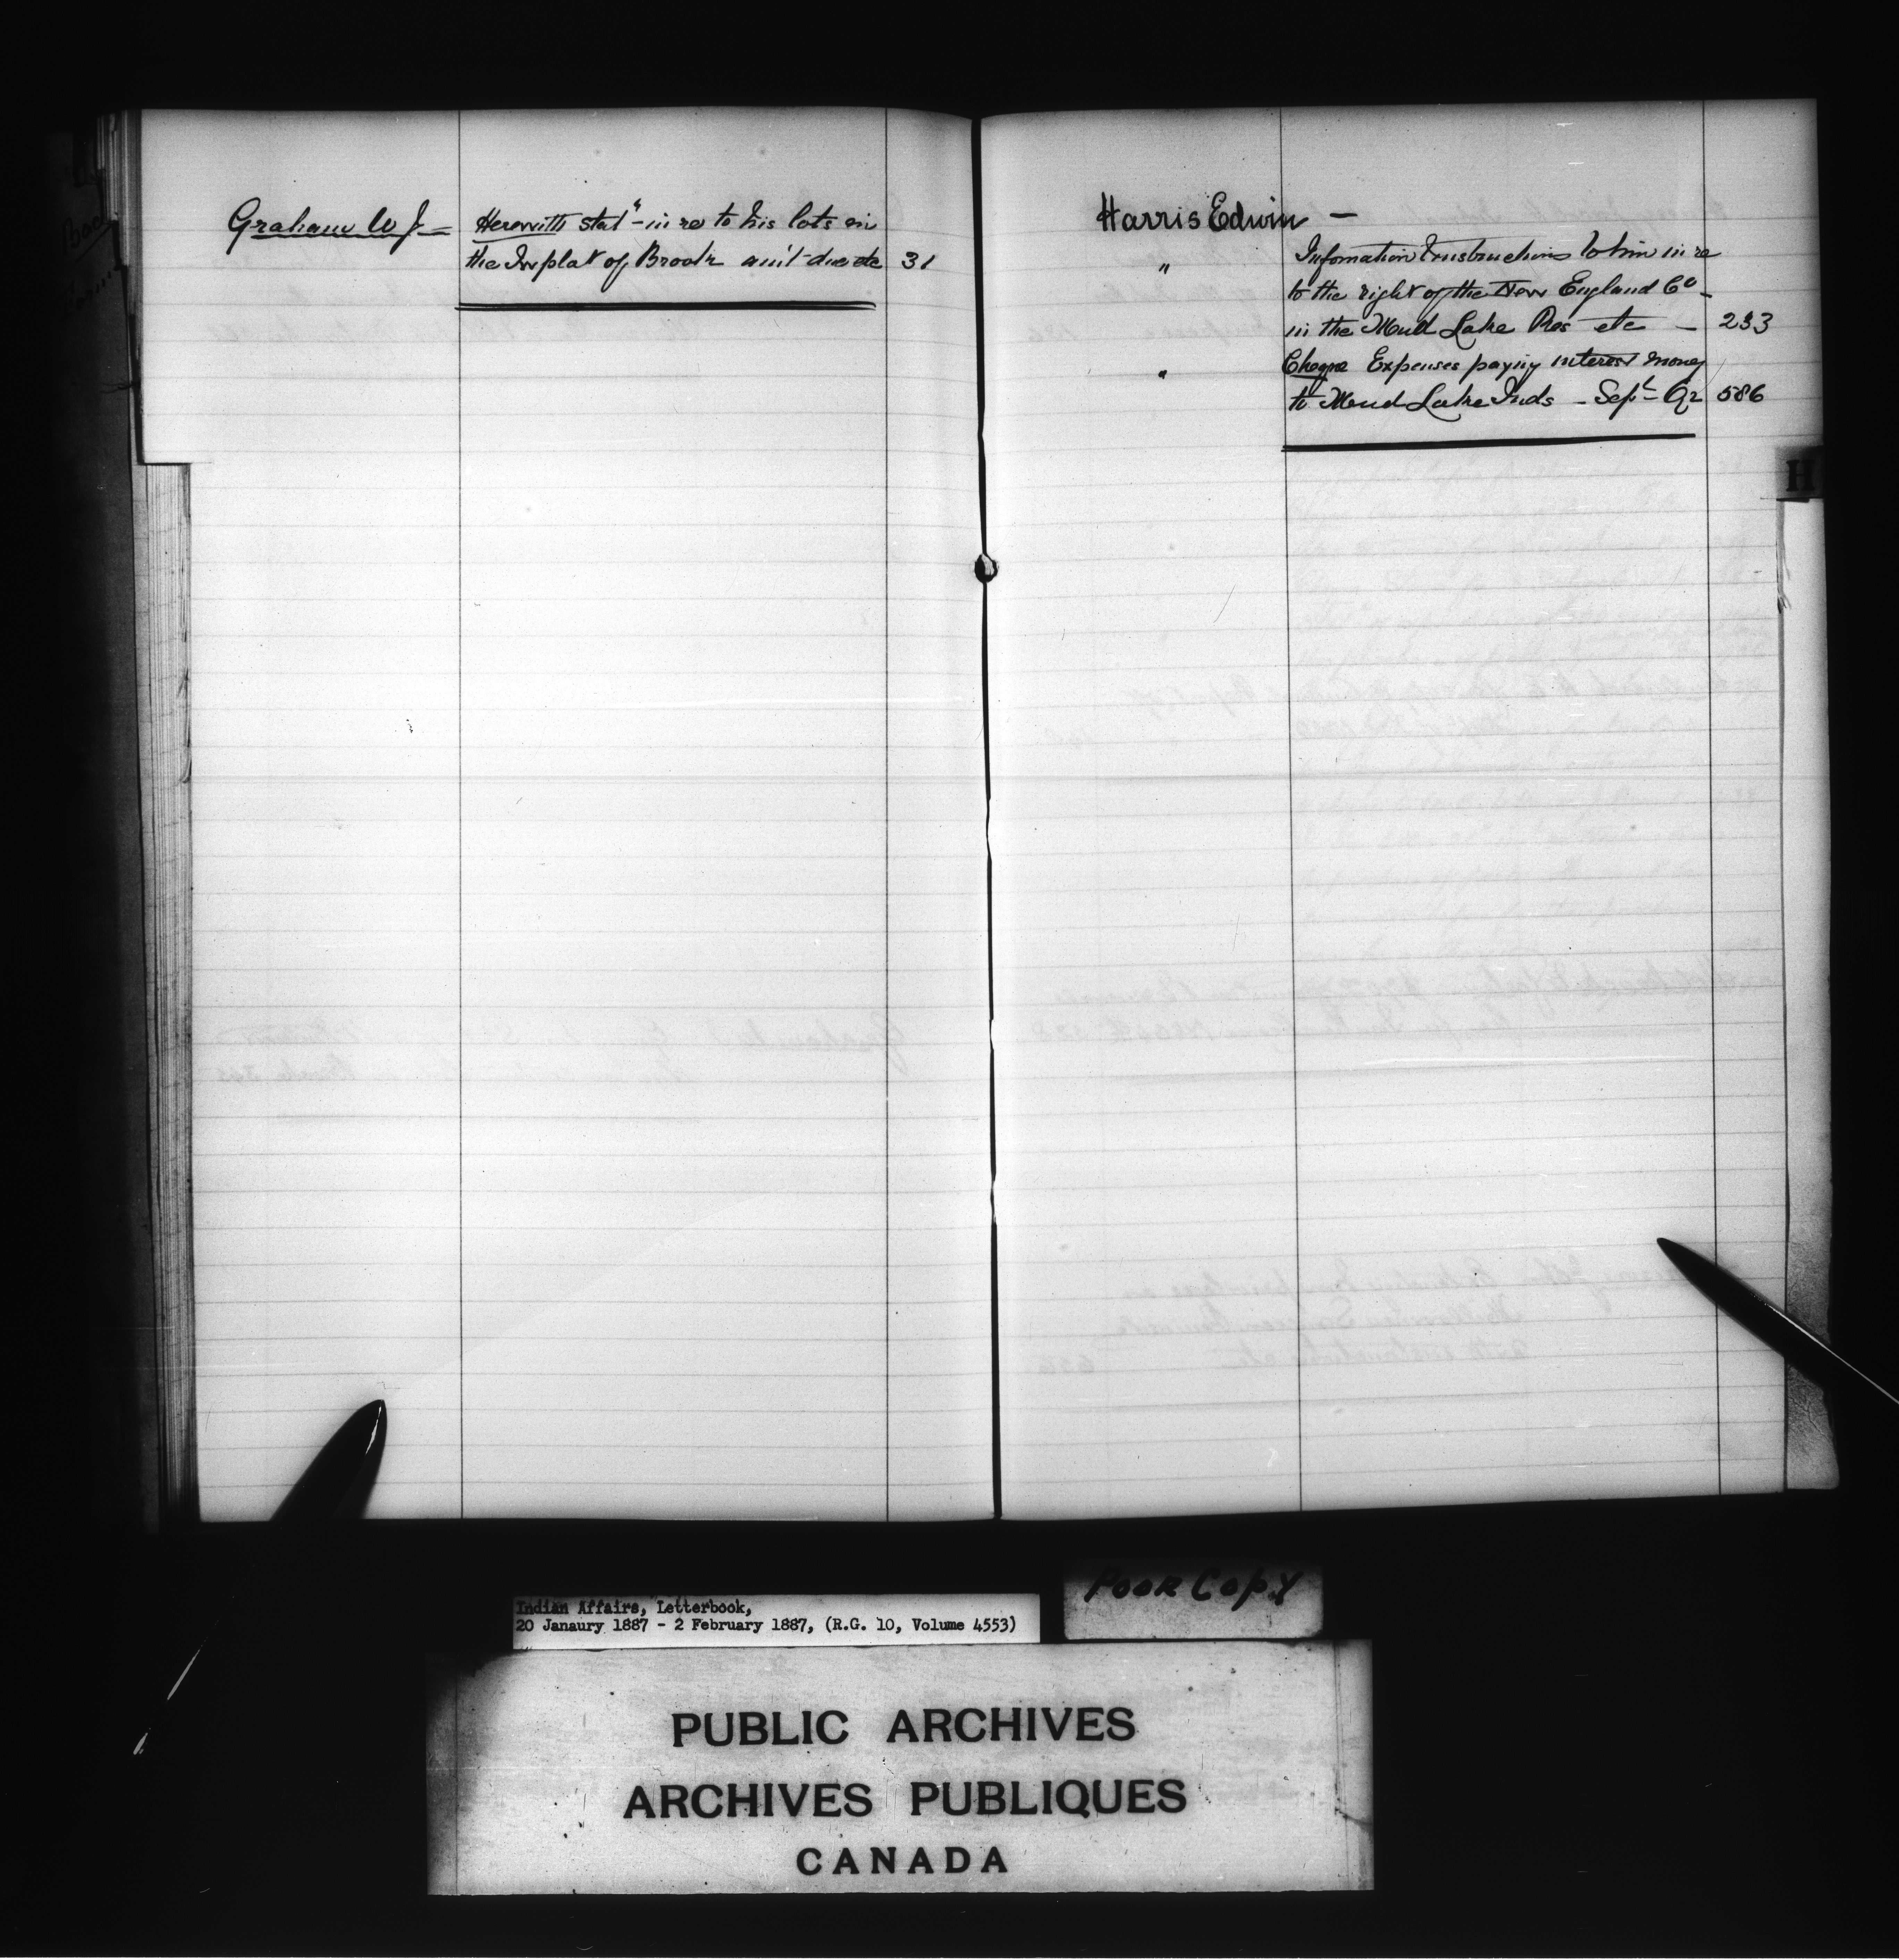 Graham W J — Herewith stat" - in re to his lots in
the Tn plat of Brooke am't due etc 31
Harris Edwin —
" Information & instructions to him in re
to the right of the New England Co -
in the Mud Lake Res etc — 233
" Cheque Expenses paying interest money
to Mud Lake Inds - Sept - Qr 586
H
Poor Copy
Indian Affairs, Letterbook,
20 Janaury 1887 - 2 February 1887, (R.G. 10, Volume 4553)
PUBLIC ARCHIVES
ARCHIVES PUBLIQUES
CANADA